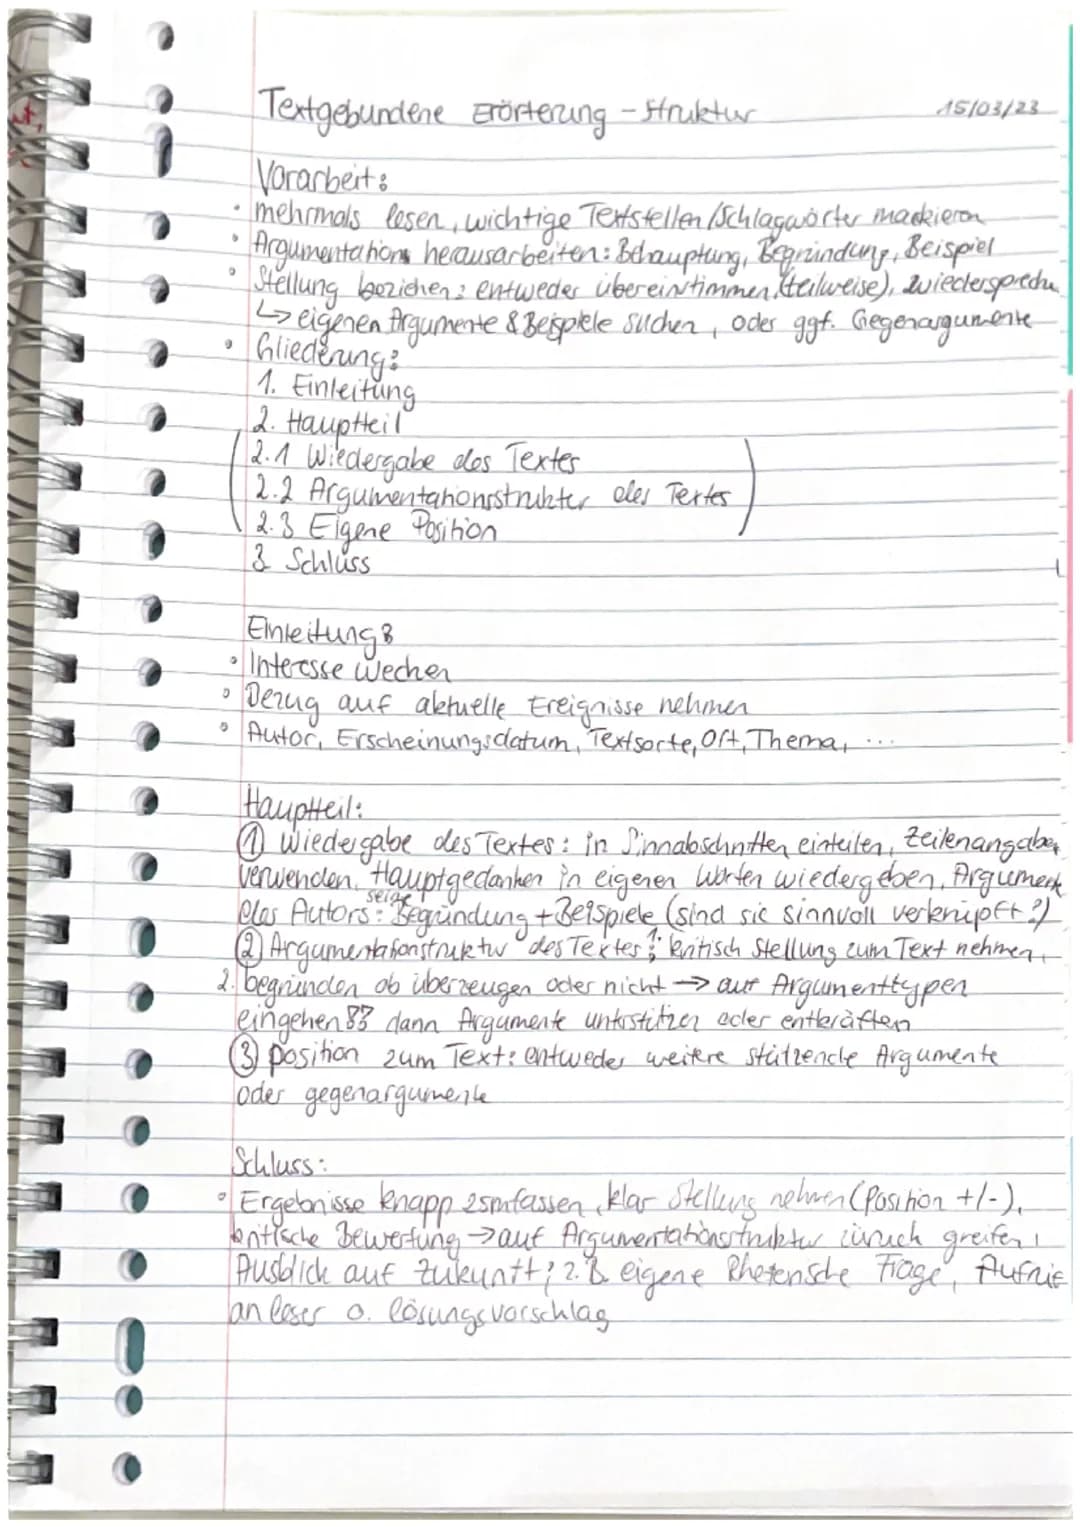 Textgebundene Erörterung - Struktur 15/03/23
Vorarbeit:
• mehrmals lesen, wichtige Textstellen/Schlagwörter markieren
• Argumentation herausarbeiten: Behauptung, Begründung, Beispiel
• Stellung beziehen: entweder übereinstimmen, (teilweise), wiedersprechen
↳ eigenen Argumente & Beispiele suchen, oder ggf. Gegenargumente
• Gliederung:
1. Einleitung
2. Hauptteil
2.1 Wiedergabe des Textes
2.2 Argumentationsstruktur des Textes
2.3 Eigene Position
3 Schluss
Einleitung:
• Interesse wecken
• Bezug auf aktuelle Ereignisse nehmen
• Autor, Erscheinungsdatum, Textsorte, Ort, Thema, ...
Hauptteil:
① Wiedergabe des Textes: in Sinnabschnitten einteilen, Zeilenangaben
verwenden, Hauptgedanken in eigenen Worten wiedergeben, Argumente
des Autors: seine Begründung + Beispiele (sind sie sinnvoll verknüpft?)
② Argumentationstruktur des Textes: 1. kritisch Stellung zum Text nehmen,
2. begründen ob überzeugen oder nicht → auf Argumenttypen
eingehen dann Argumente unterstützen oder entkräften
③ position zum Text: entweder weitere stützende Argumente
oder gegenargumente
Schluss:
• Ergebnisse knapp zsmfassen, klar Stellung nehmen (Position +/-),
kritische Bewertung → auf Argumentationsstruktur zurück greifen,
Ausblick auf Zukunft; z.B. eigene Rhetorische Frage, Aufruf
an leser o. lösungsvorschlag